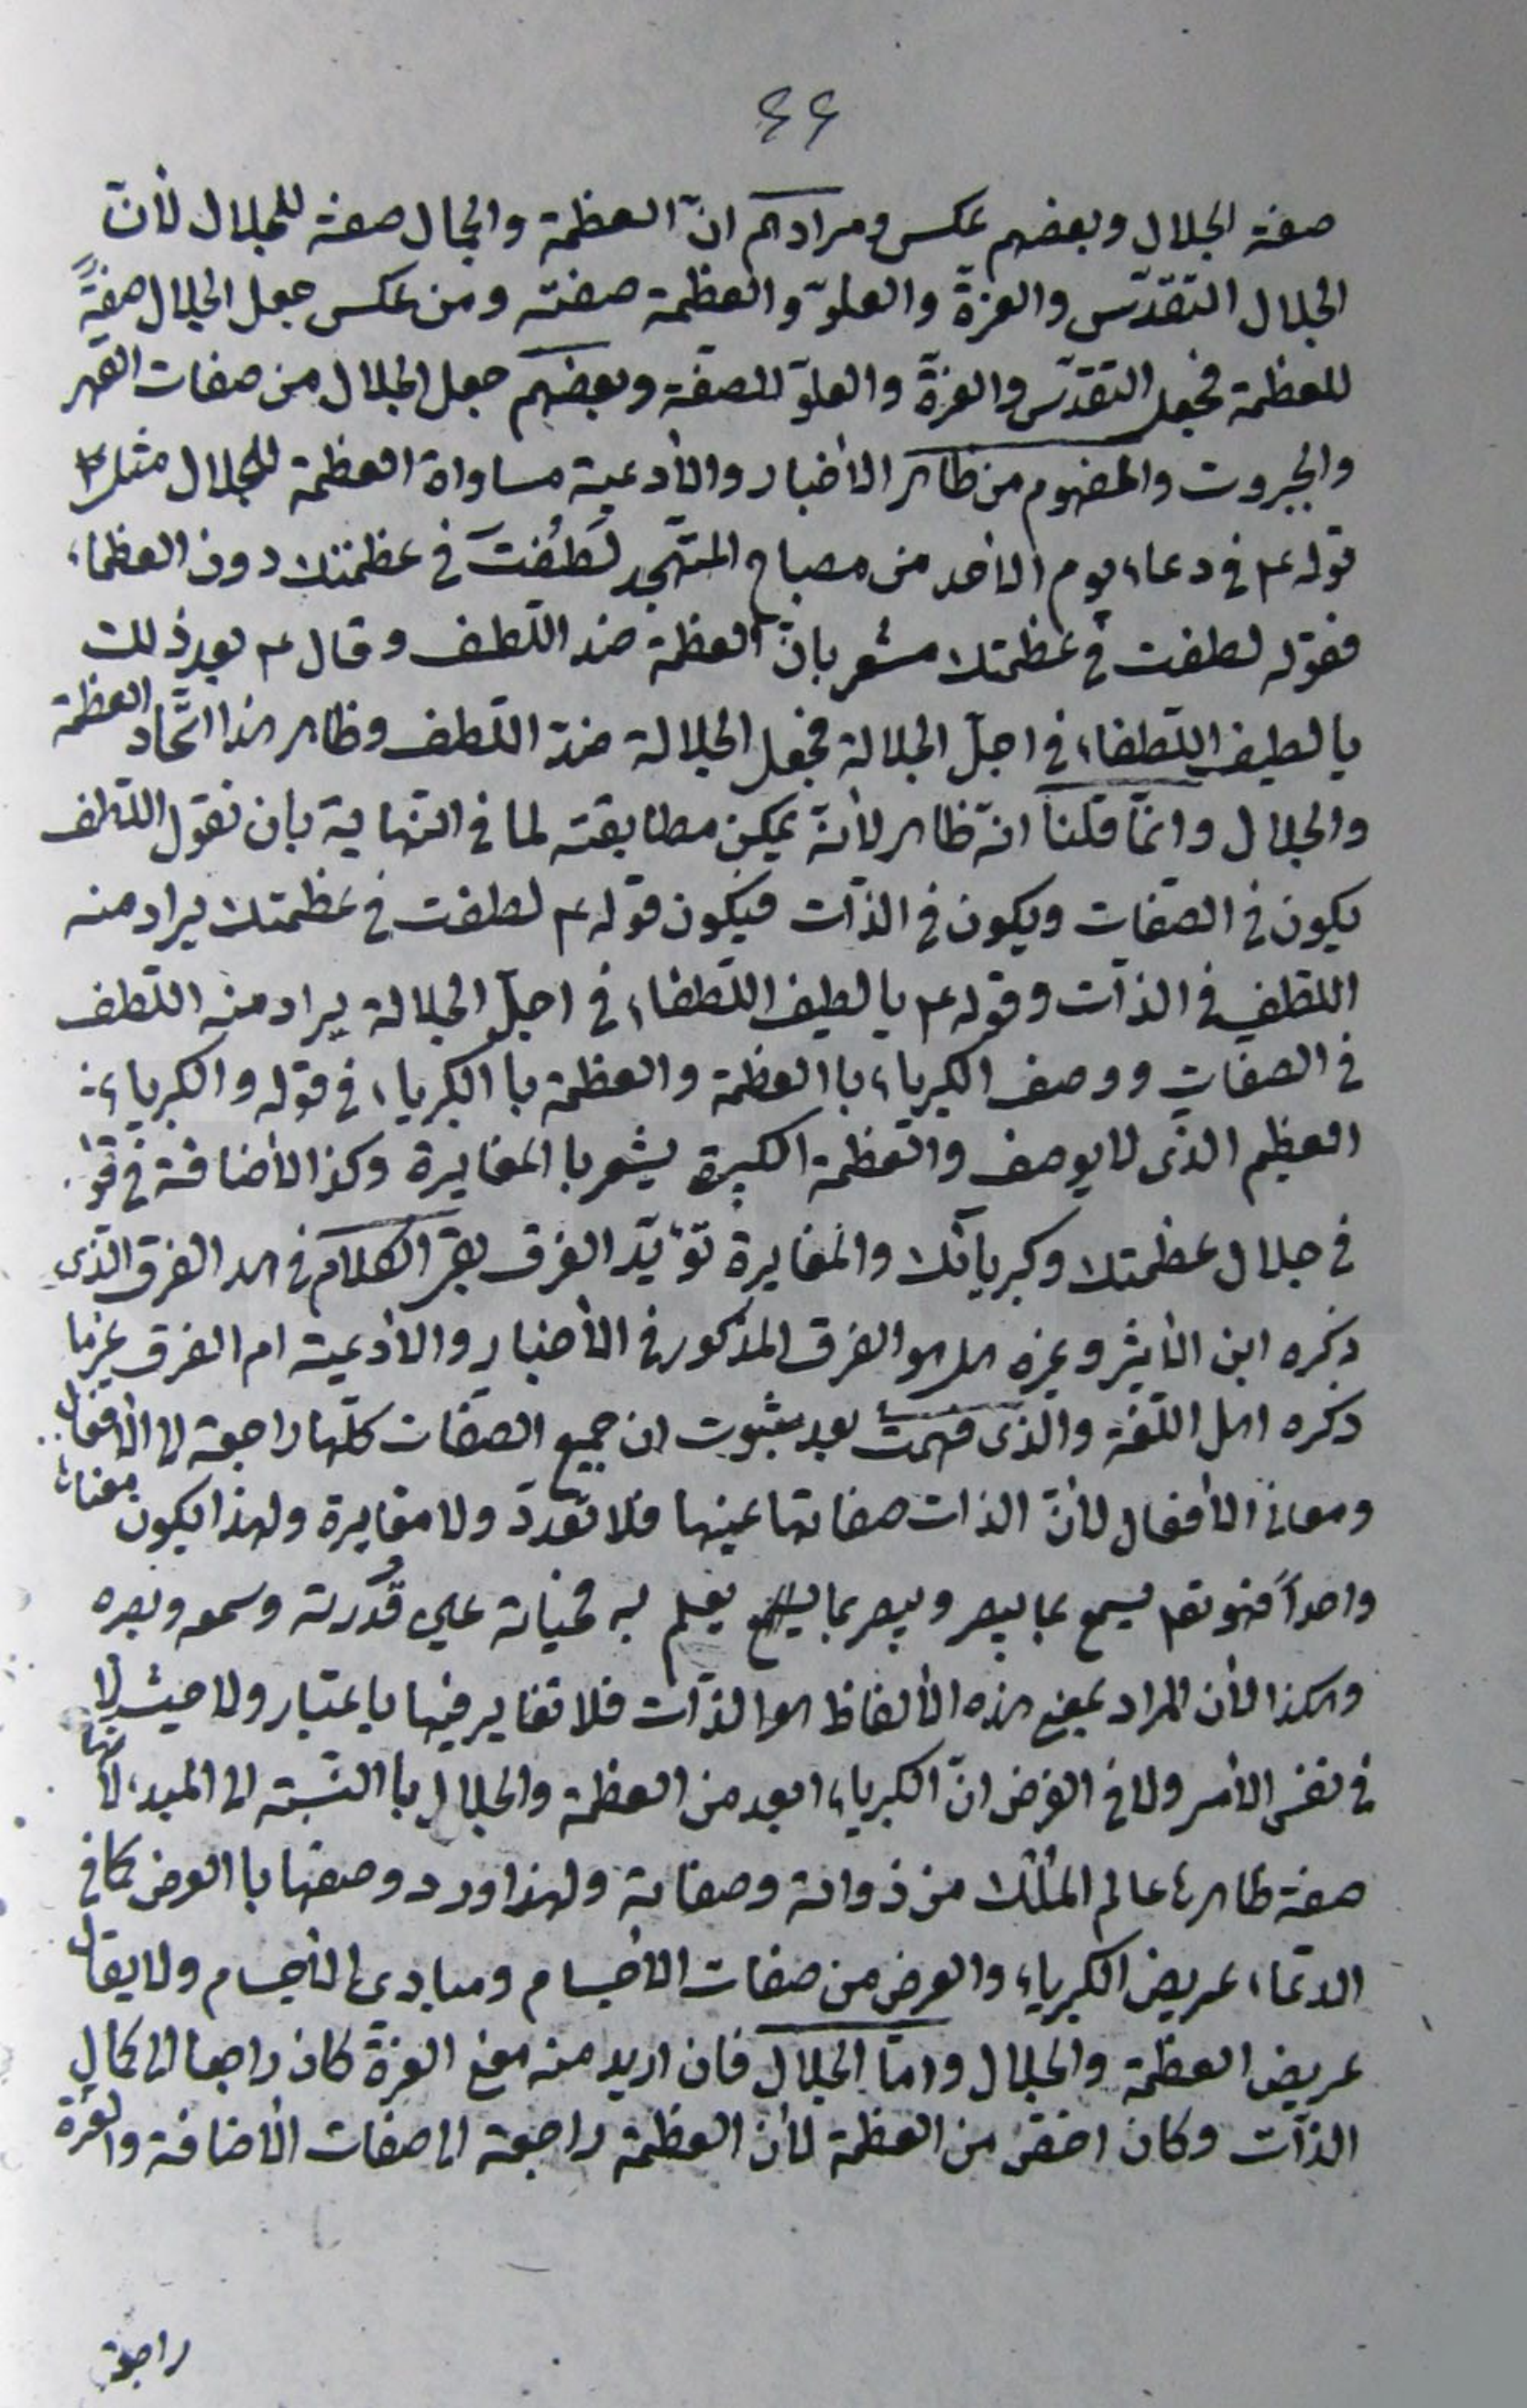 ٤٤
صفة الجلال وبعضهم عكس ومرادهم انّ العظمة والجمال صفة للجلال لأنّ
الجلال التقدّس والعزة والعلوّ والعظمة صفته ومن عكس جعل الجلال صفةً
للعظمة فجعل التقدّس والعزة والعلوّ للصفة وبعضهم جعل الجلال من صفات القهر
والجبروت والمفهوم من ظاهر الاخبار والأدعية مساواة العظمة للجلال مثل
قوله ع في دعاء يوم الأحد من مصباح المتهجد لَطُفْتَ في عظمتك دون العظماء
فقوله لطفت في عظمتك مشعر بانّ العظمة ضد اللّطف وقال ع بعد ذلك
يا لطيف اللّطفاء في اجلّ الجلالة فجعل الجلالة ضدّ اللّطف وظاهر هذا اتّحاد العظمة
والجلال وانّما قلنا انّه ظاهر لأنّه يمكن مطابقته لما في النّهاية بان نقول اللّطف
يكون في الصّفات ويكون في الذّات فيكون قوله ع لطفت في عظمتك يراد منه
اللّطف في الذّات وقوله ع يا لطيف اللّطفاء في اجلّ الجلالة يراد منه اللّطف
في الصفات ووصف الكبرياء با العظمة والعظمة با الكبرياء في قوله والكبرياء
العظيم الذّى لا يوصف والعظمة الكبيرة يشعر با المغايرة وكذا الأضافة في قو
في جلال عظمتك وكبريائك والمغايرة تؤيّد الفرق بقى الكلام في هل الفرق الذّى
ذكره ابن الأثير وغيره هل هو الفرق المذكور في الأخبار والأدعية ام الفرق غير ما
ذكره اهل اللّغة والّذى فهمت بعد ثبوت ان جميع الصّفات كلّها راجعة الى الأفعال
ومعاني الأفعال لأنّ الذات صفاتها عينها فلا تعدد ولا مغايرة ولهذا يكون معناه
واحداً فهو تعم يسمع بما يبصر ويبصر بما يسمع يعلم به فحياته علي قُدرته وسمعه وبصره
وهكذا لأن المراد بمعنى هذه الألفاظ هو الذّات فلا تغاير فيها باعتبار ولا حيث لا
في نفس الأمر ولا في الفرض انّ الكبرياء ابعد من العظمة والجلال با النّسبة الى المبدء لأنّها
صفة ظاهر عالم الملك من ذواته وصفاته ولهذا ورد وصفها با العرض كما في
الدّعاء عريض الكبرياء والعرض من صفات الأجسام ومبادي الأجسام ولا يقال
عريض العظمة والجلال وامّا الجلال فان اريد منه معنى العزة كان راجعا الى كمال
الذّات وكان اخصّ من العظمة لأن العظمة راجعة الى صفات الأضافة والعزة
راجعة